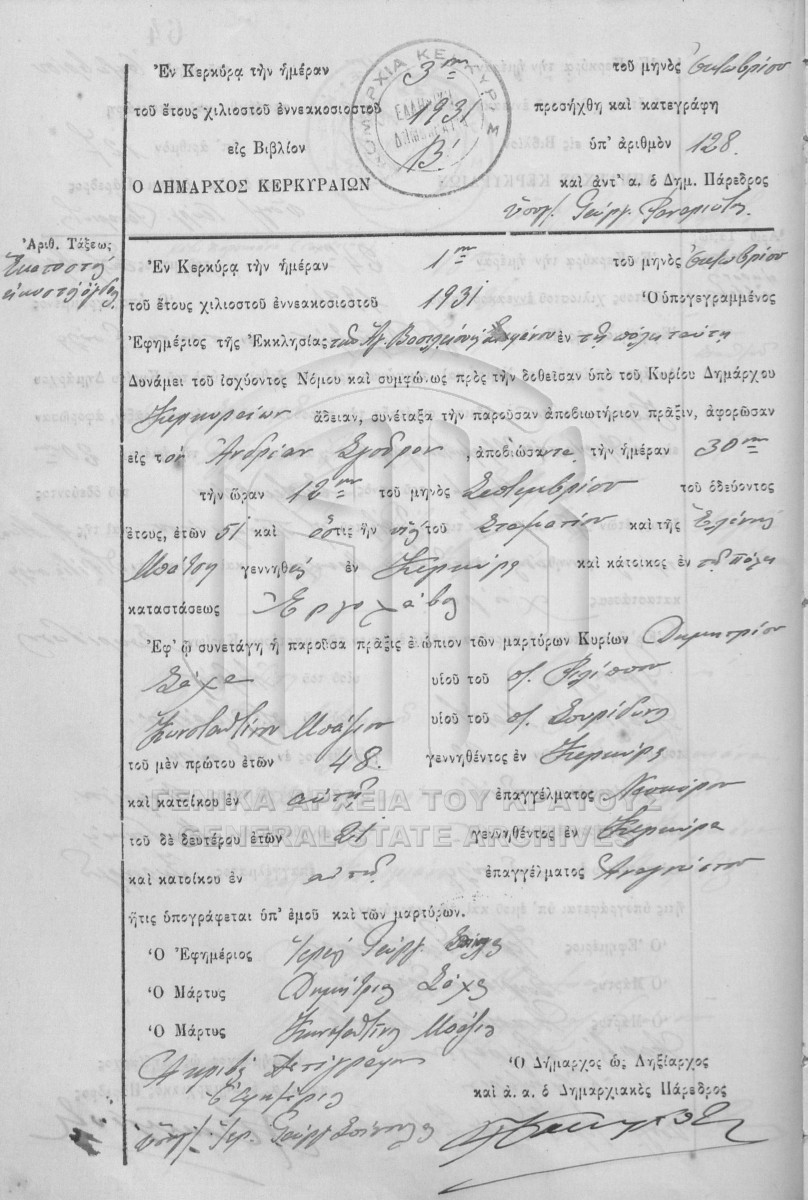 Ἐν Κερκύρᾳ τὴν ἡμέραν 3ην τοῦ μηνὸς Ὀκτωβρίου
τοῦ ἔτους χιλιοστοῦ ἐννεακοσιοστοῦ 1931 προσήχθη καὶ κατεγράφη
εἰς Βιβλίον Β΄ ὑπ' ἀριθμὸν 128.
Ὁ ΔΗΜΑΡΧΟΣ ΚΕΡΚΥΡΑΙΩΝ καὶ ἀντ' α. ὁ Δημ. Πάρεδρος
ὑπογρ. Γεώργ.
Ἀριθ. Τάξεως
Ἑκατοστὴ
εἰκοστὴ ὀγδόη
Ἐν Κερκύρᾳ τὴν ἡμέραν 1ην τοῦ μηνὸς Ὀκτωβρίου
τοῦ ἔτους χιλιοστοῦ ἐννεακοσιοστοῦ 1931 Ὁ ὑπογεγραμμένος
Ἐφημέριος τῆς Ἐκκλησίας τῶν Ἁγ. Βασιλείου Στεφάνου ἐν τῇ πόλει ταύτῃ
Δυνάμει τοῦ ἰσχύοντος Νόμου καὶ συμφώ.ως πρὸς τὴν δοθεῖσαν ὑπὸ τοῦ Κυρίου Δημάρχου
Κερκυραίων ἄδειαν, συνέταξα τὴν παροῦσαν ἀποβιωτήριον πρᾶξιν, ἀφορῶσαν
εἰς τὸν Ἀνδρέαν Σκόδραν, ἀποβιώσαντα τὴν ἡμέραν 30ην
τὴν ὥραν 12ην τοῦ μηνὸς Σεπτεμβρίου τοῦ ὁδεύοντος
ἔτους, ἐτῶν 51 καὶ ὅστις ἦν υἱὸς τοῦ Σταματίου καὶ τῆς Ἑλένης
Μπάτση γεννηθεὶς ἐν Κερκύρᾳ καὶ κάτοικος ἐν τῇ πόλει
καταστάσεως Ἐργολάβος
Ἐφ' ᾧ συνετάγη ἡ παροῦσα πρᾶξις ἐνώπιον τῶν μαρτύρων Κυρίων Δημητρίου
Σάχα υἱοῦ τοῦ π. Φιλίππου
Κωνσταντίνου Μπάζιου υἱοῦ τοῦ π. Σπυρίδωνος
τοῦ μὲν πρώτου ἐτῶν 48. γεννηθέντος ἐν Κερκύρᾳ
καὶ κατοίκου ἐν αὐτῇ ἐπαγγέλματος Νεωκόρου
τοῦ δὲ δευτέρου ἐτῶν 21 γεννηθέντος ἐν Κερκύρᾳ
καὶ κατοίκου ἐν αὐτῇ ἐπαγγέλματος Ἀναγνώστου
ἥτις ὑπογράφεται ὑπ' ἐμοῦ καὶ τῶν μαρτύρων.
Ὁ Ἐφημέριος Ἱερεὺς Γεώργ.
Ὁ Μάρτυς Δημήτριος Σάχας
Ὁ Μάρτυς Κωνσταντῖνος Μπάζιος
Ἀκριβὲς Ἀντίγραφον Ὁ Δήμαρχος ὡς Ληξίαρχος
Ὁ Ἐφημέριος καὶ ἀ. α. ὁ Δημαρχιακὸς Πάρεδρος
ὑπογρ. Ἱερ. Γεώργ.
ΓΕΝΙΚΑ ΑΡΧΕΙΑ ΤΟΥ ΚΡΑΤΟΥΣ
GENERAL STATE ARCHIVES